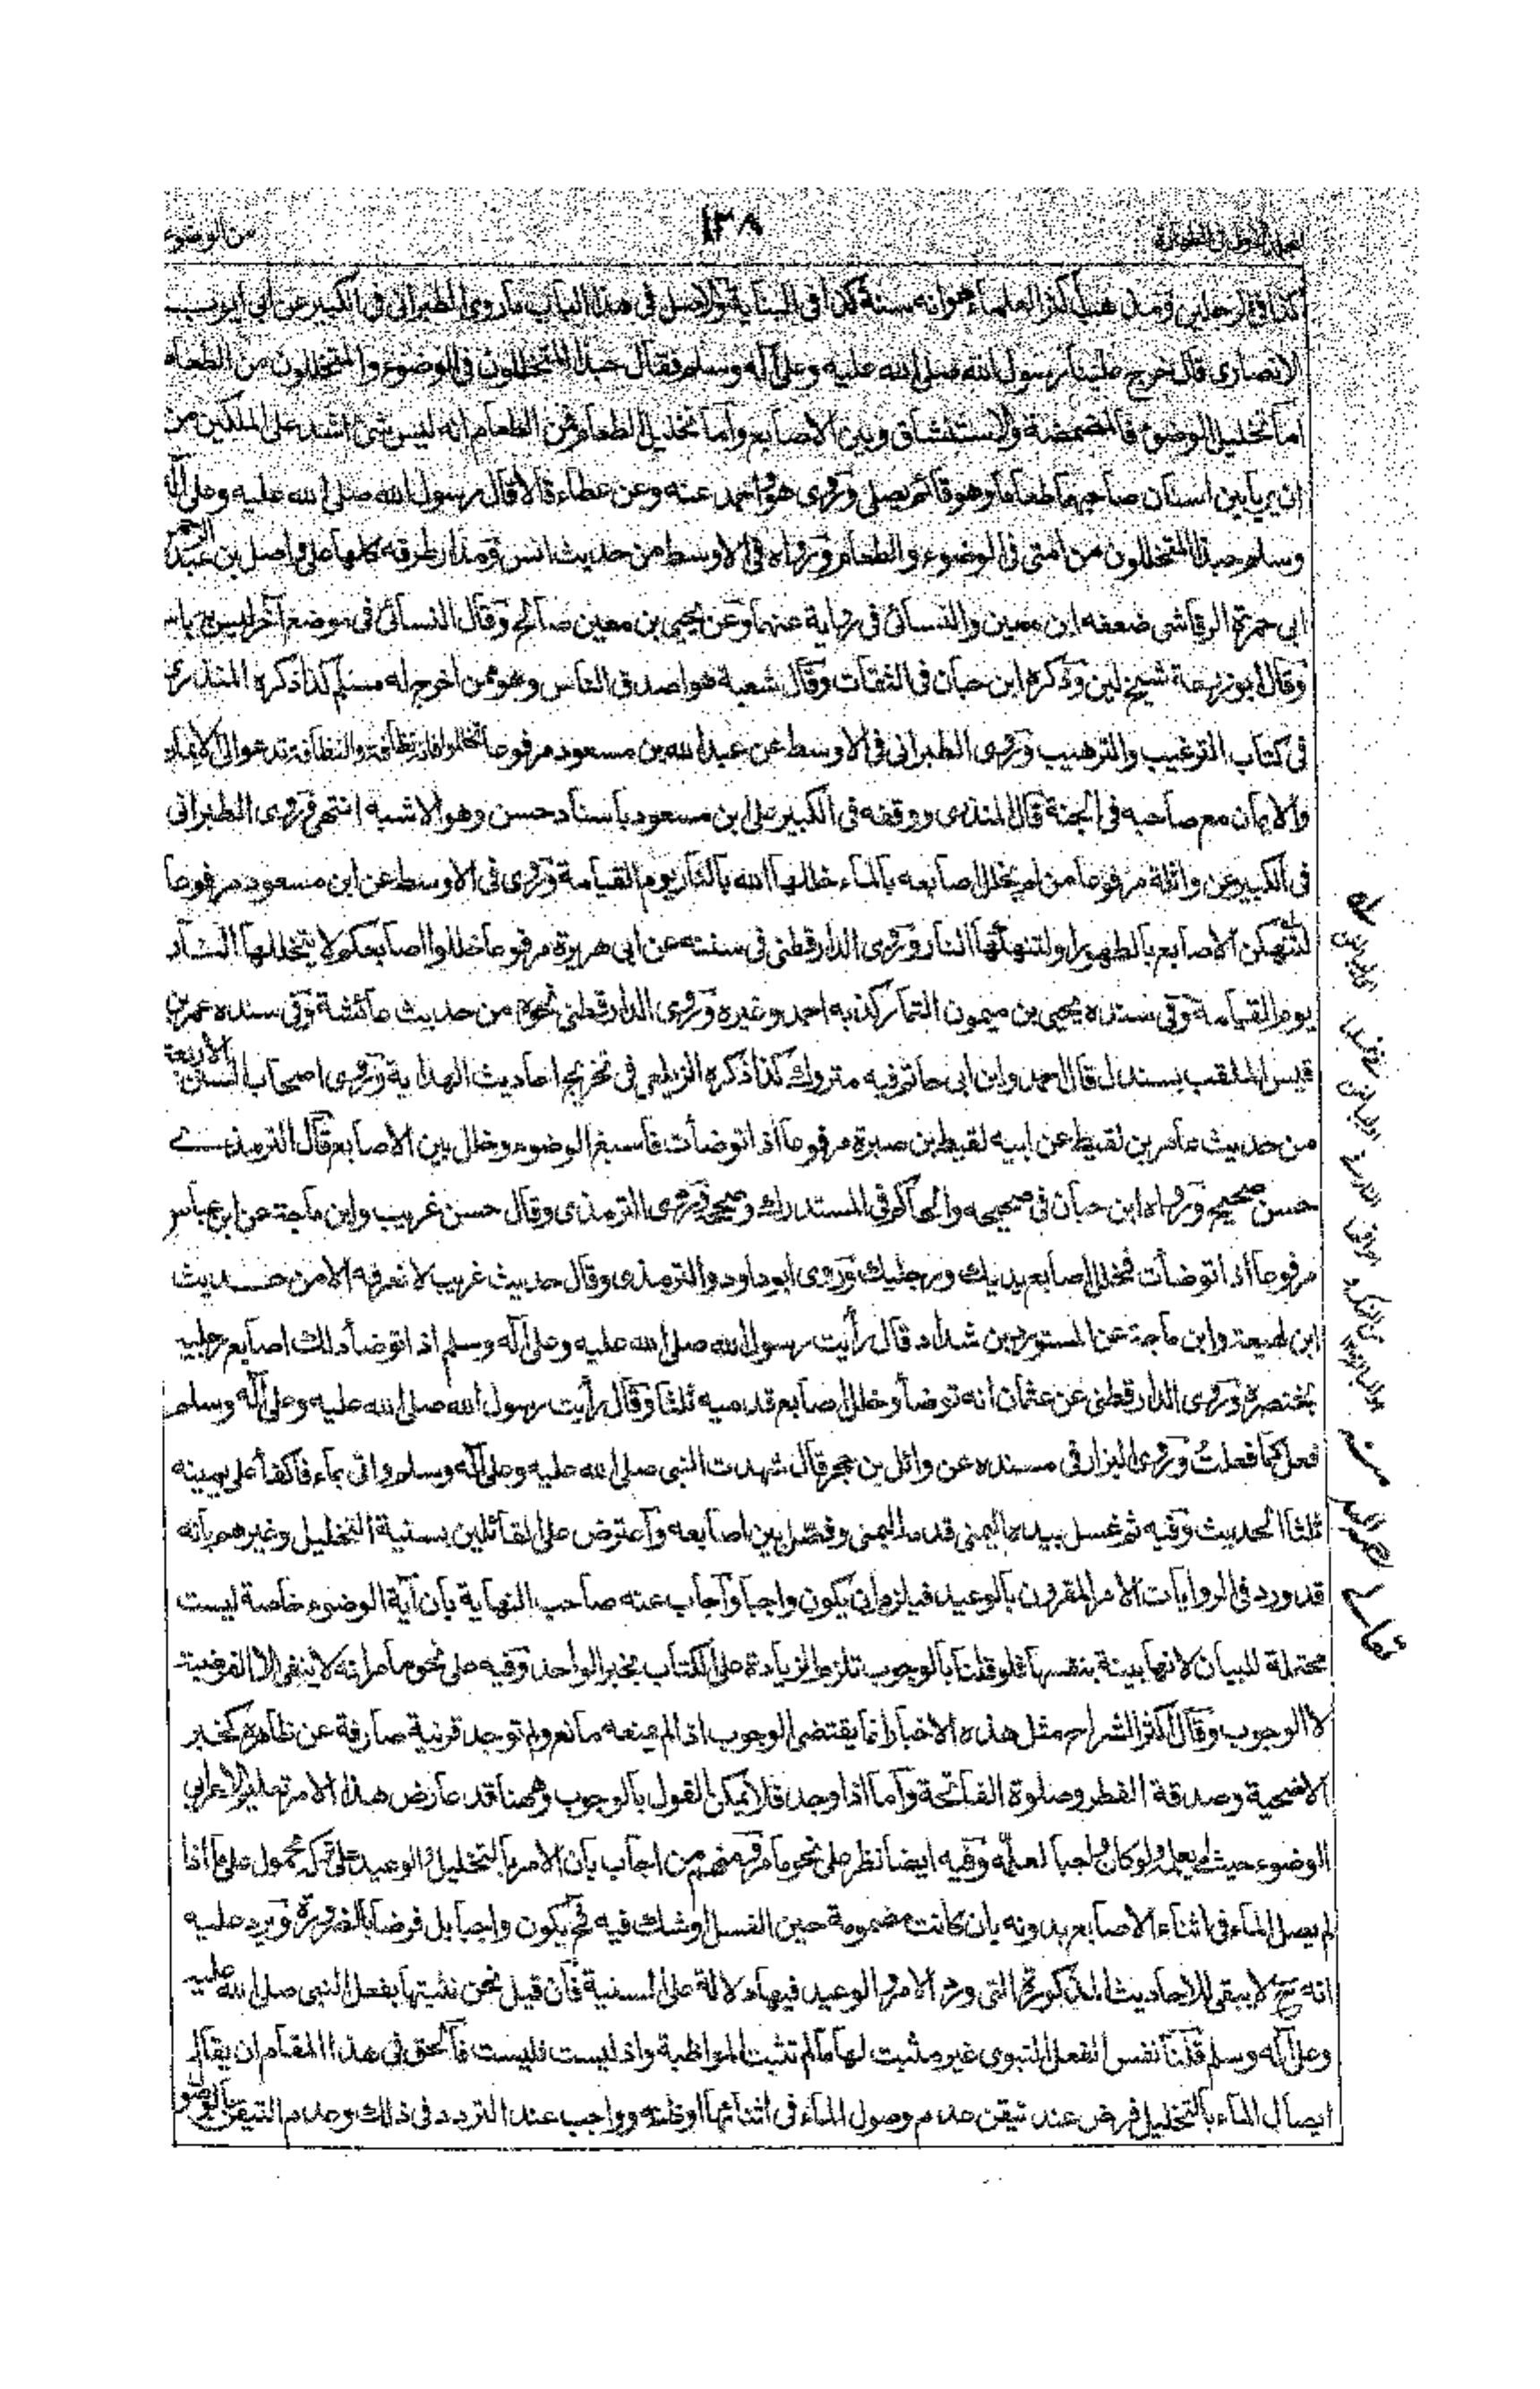 ١٣٨
من الوضوء
كذا في الرجلين ومذهب أكثر العلماء هو انه سنة كذا في البناية والاصل في هذا الباب ما روى الطبراني في الكبير عن ابي ايوب
الانصارى قال خرج علينا رسول الله صلى الله عليه وعلى آله وسلم فقال حبذا المتخللون في الوضوء والمتخللون من الطعام
اما تخليل الوضوء فالمضمضة والاستنشاق وبين الاصابع واما تخليل الطعام فمن الطعام انه ليس شئ اشد على الملكين من
ان يريا بين اسنان صاحبهما طعاما وهو قائم يصلى وروى هو واحمد عنه وعن عطاء قالا قال رسول الله صلى الله عليه وعلى آله
وسلم حبذا المتخللون من امتى فى الوضوء والطعام ورواه فى الاوسط من حديث انس ومدار طرقه كلها على واصل بن عبد الرحمن
ابى حرة الرقاشى ضعفه ابن معين والنسائى فى رواية عنهما وعن يحيى بن معين صالح وقال النسائى فى موضع آخر ليس به باس
وقال ابو زرعة شيخ لين وذكره ابن حبان فى الثقات وقال شعبة هو اصدق الناس وهو ممن اخرج له مسلم كذا ذكره المنذرى
فى كتاب الترغيب والترهيب وروى الطبرانى فى الاوسط عن عبد الله بن مسعود مرفوعا تخللوا فانه نظافة والنظافة تدعو الى الايمان
والايمان مع صاحبه فى الجنة قال المنذرى ووقفه فى الكبير على ابن مسعود باسناد حسن وهو الاشبه انتهى وروى الطبرانى
فى الكبير عن واثلة مرفوعا من لم يخلل اصابعه بالماء خللها الله بالنار يوم القيامة وروى فى الاوسط عن ابن مسعود مرفوعا
لتنهكن الاصابع بالطهور او لتنهكنها النار وروى الدارقطنى فى سننه عن ابى هريرة مرفوعا خللوا اصابعكم لا يتخللها النار
يوم القيامة وفى سنده يحيى بن ميمون التمار كذبه احمد وغيره وروى الدارقطنى نحوه من حديث عائشة وفى سنده عمر بن
قيس الملقب بسندل قال احمد وابن ابى حاتم فيه متروك كذا ذكره الزيلعى فى تخريج احاديث الهداية وروى اصحاب السنن الاربعة
من حديث عاصم بن لقيط عن ابيه لقيط بن صبرة مرفوعا اذا توضأت فاسبغ الوضوء وخلل بين الاصابع قال الترمذى
حسن صحيح ورواه ابن حبان فى صحيحه والحاكم فى المستدرك وصححه وروى الترمذى وقال حسن غريب وابن ماجة عن ابن عباس
مرفوعا اذا توضأت فخلل اصابع يديك ورجليك وروى ابو داود والترمذى وقال حديث غريب لا نعرفه الا من حديث
ابن لهيعة وابن ماجة عن المستورد بن شداد قال رأيت رسول الله صلى الله عليه وعلى آله وسلم اذا توضأ دلك اصابع رجليه
بخنصره وروى الدارقطنى عن عثمان انه توضأ وخلل اصابع قدميه ثلثا وقال رأيت رسول الله صلى الله عليه وعلى آله وسلم
فعل كما فعلتُ وروى البزار فى مسنده عن وائل بن حجر قال شهدت النبى صلى الله عليه وعلى آله وسلم واتى بماء فاكفأ على يمينه
ثلثا الحديث وفيه ثم غسل بيده اليمنى قدمه اليمنى وفصل بين اصابعه واعترض على القائلين بسنية التخليل وغيرهم بانه
قد ورد فى الروايات الامر المقرون بالوعيد فيلزم ان يكون واجبا واجاب عنه صاحب النهاية بان آية الوضوء خاصة ليست
محتملة للبيان لانها بينة بنفسها فلو قلنا بالوجوب تلزم الزيادة على الكتاب بخبر الواحد وفيه على نحو ما مر انه لا ينفى الا الفرضية
لا الوجوب وقال اكثر الشراح مثل هذه الاخبار انما يقتضى الوجوب اذا لم يمنعه مانع ولم توجد قرنية صارفة عن ظاهره كخبر
الاضحية وصدقة الفطر وصلوة الفاتحة واما اذا وجد فلا يمكن القول بالوجوب وههنا قد عارض هذا الامر تعليم الاعرابى
الوضوء حيث لم يعلمه ولو كان واجبا لعلمه وفيه ايضا نظر على نحو ما مر ومنهم من اجاب بان الامر بالتخليل والوعيد على تركه محمول على ما اذا
لم يصل الماء فى اثناء الاصابع بدونه بان كانت مضمومة حين الغسل او شك فيه فح يكون واجبا بل فرضا بالضرورة ويرد عليه
انه ح لا يبقى للاحاديث المذكورة التى ورد الامر والوعيد فيها دلالة على السنية فان قيل نحن نثبتها بفعل النبى صلى الله عليه
وعلى آله وسلم قلنا نفس الفعل النبوى غير مثبت لها ما لم تثبت المواظبة واذ ليست فليست فالحق فى هذا المقام ان يقال
ايصال الماء بالتخليل فرض عند تيقن عدم وصول الماء فى اثنائها او ظنه وواجب عند التردد فى ذلك وعدم التيقن بالوضوء